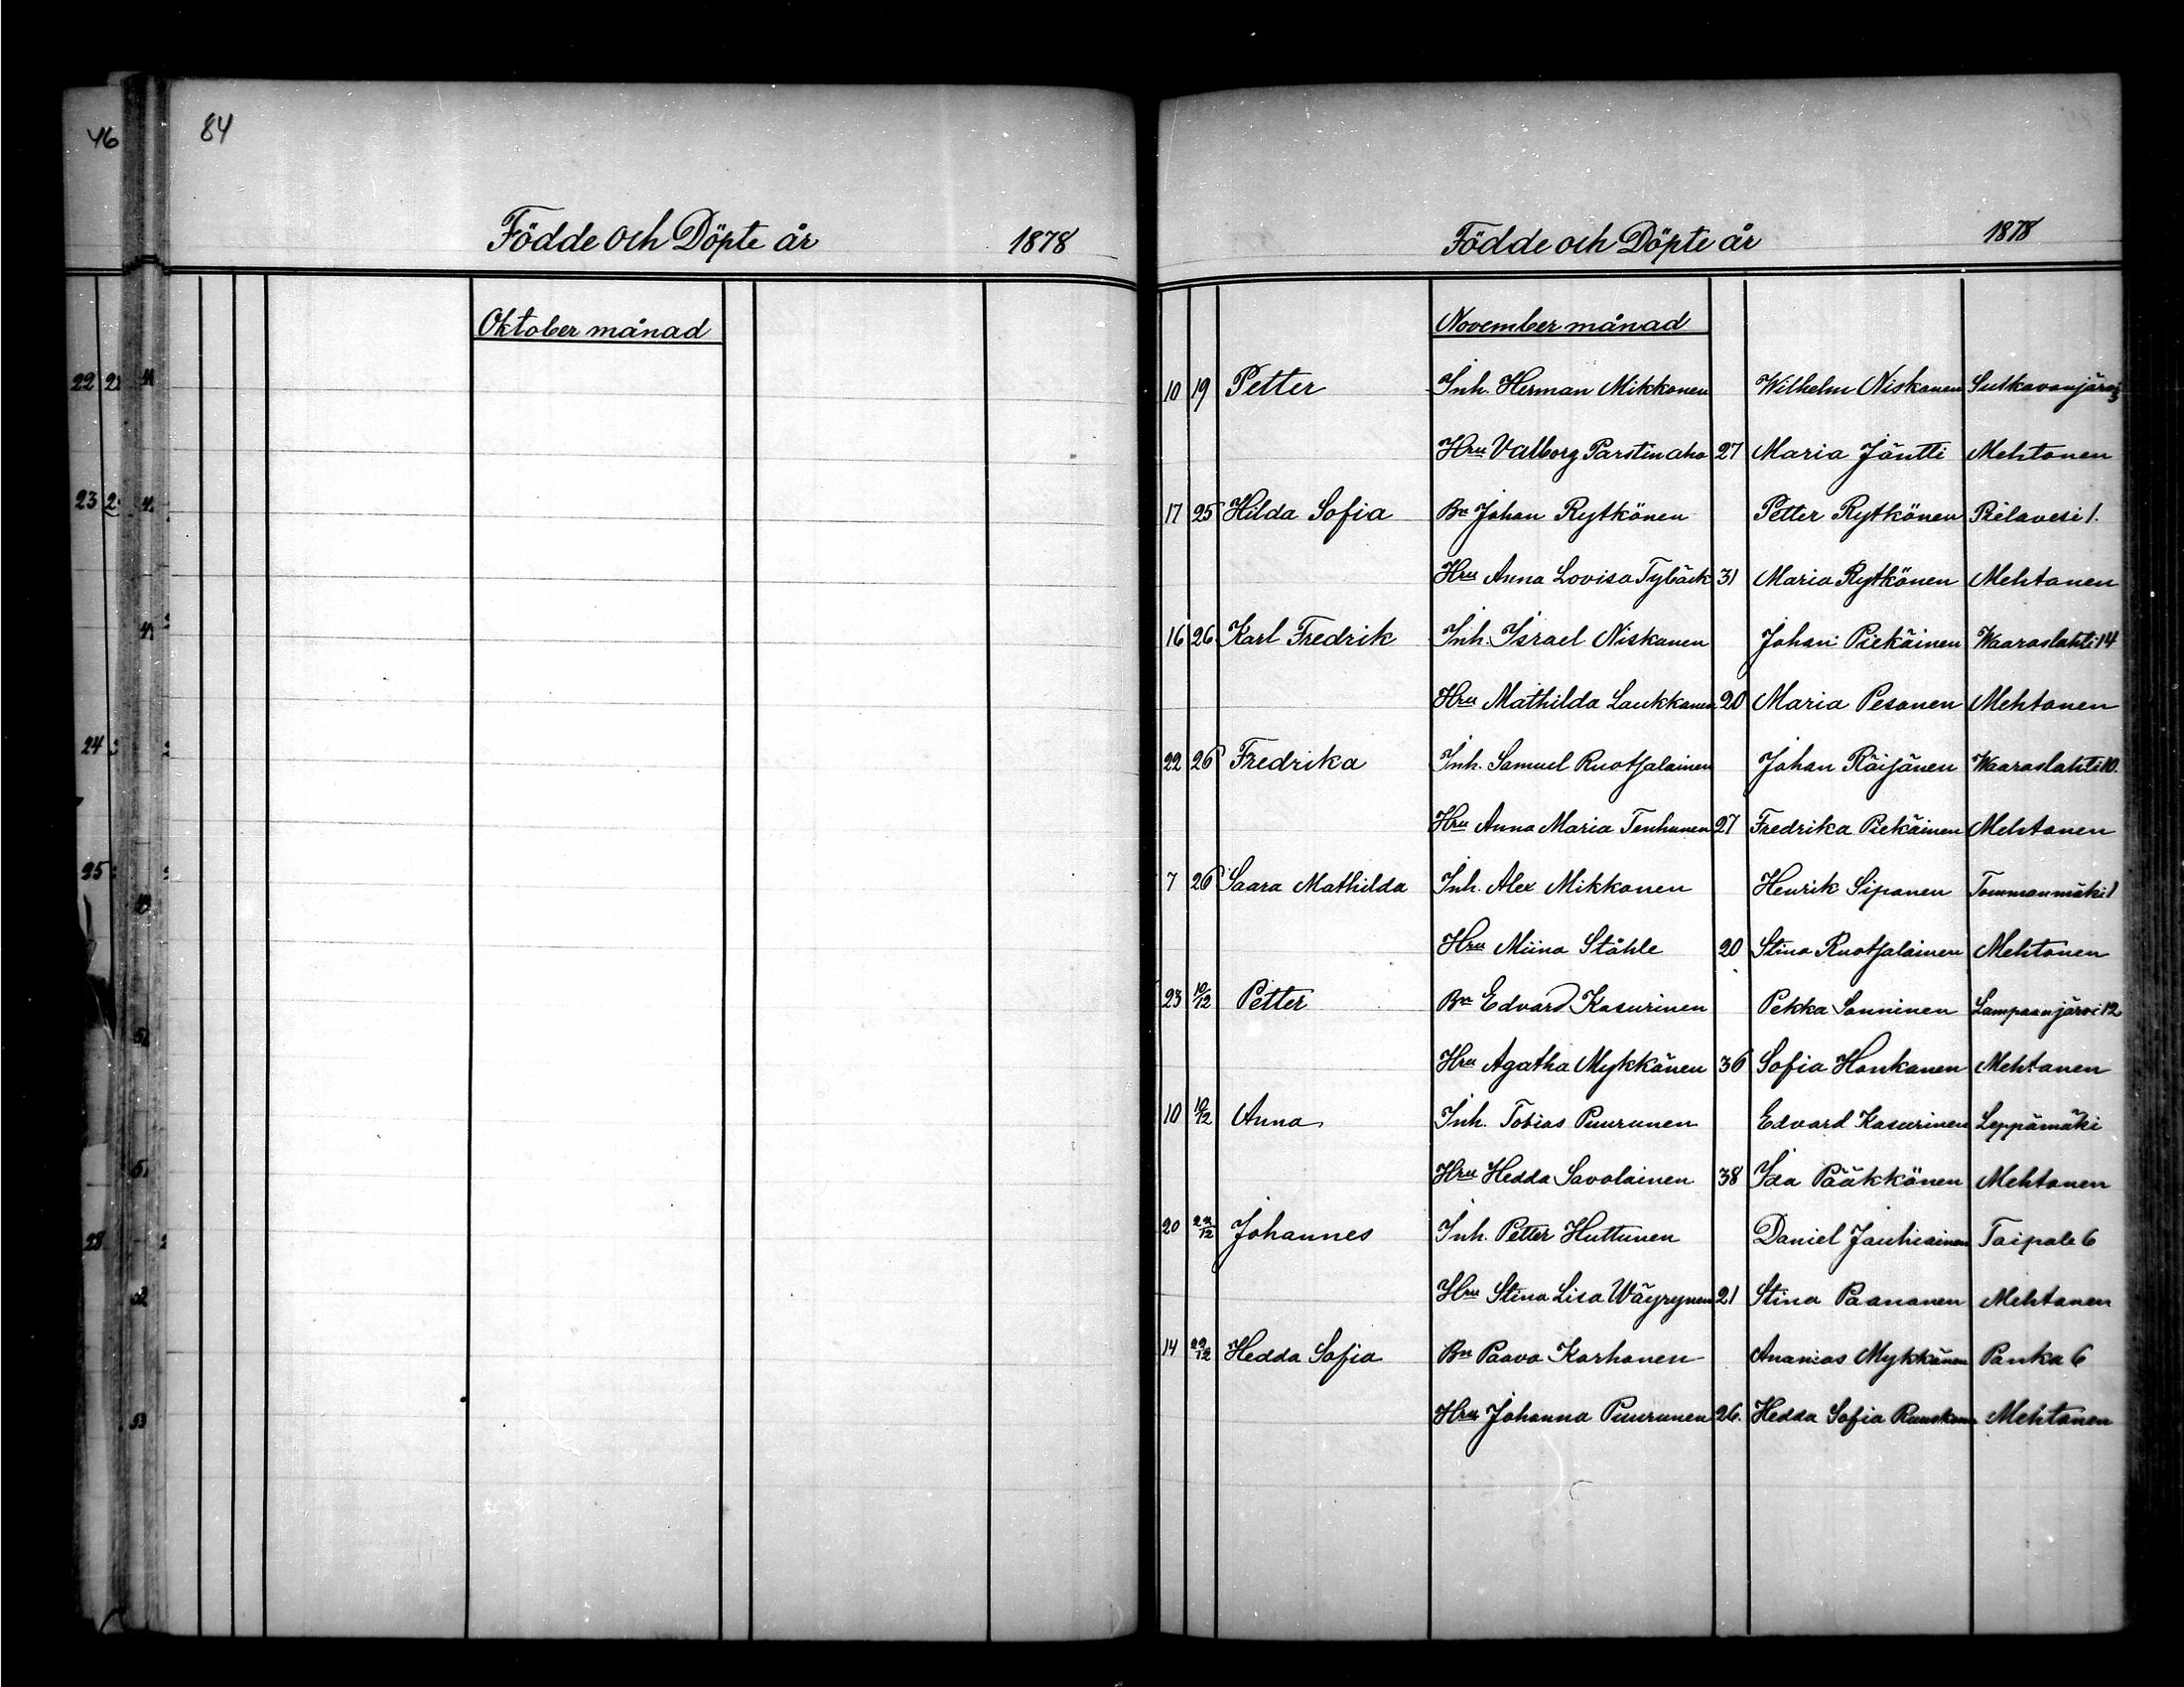 46
84
Födde och Döpte år 1878
Oktober månad
22
23
24
25
28
Födde och Döpte år 1878
November månad
10 19 Petter Inh. Herman Mikkonen Wilhelm Niskanen Sutkavanjärvi 3
Hru Valborg Parstinaho 27 Maria Jäntti Mehtonen
17 25 Hilda Sofia Bn Johan Rytkönen Petter Rytkönen Pielavesi 1.
Hru Anna Lovisa Tybäck 31 Maria Rytkönen Mehtonen
16 26 Karl Fredrik Inh. Israel Niskanen Johan Piekäinen Waaraslahti 14
Hru Mathilda Laukkanen 20 Maria Pesonen Mehtonen
22 26 Fredrika Inh. Samuel Ruotsalainen Johan Räijänen Waaraslahti 10.
Hru Anna Maria Tenhunen 27 Fredrika Piekäinen Mehtonen
7 26 Saara Mathilda Inh. Alex Mikkonen Henrik Siponen Tommonmäki 1
Hru Miina Ståhle 20 Stina Ruotsalainen Mehtonen
23 10/12 Petter Bn Edvard Kasurinen Pekka Sonninen Lampaanjärvi 12
Hru Agatha Mykkänen 36 Sofia Honkanen Mehtonen
10 10/12 Anna Inh. Tobias Puurunen Edvard Kasurinen Leppämäki
Hru Hedda Savolainen 38 Ida Pääkkönen Mehtonen
20 Johannes Inh. Petter Huttunen Daniel Jauhiainen Taipale 6
Hru Stina Lisa Wäyrynen 21 Stina Paananen Mehtonen
14 22/12 Hedda Sofia Bn Paavo Korhonen Ananias Mykkänen Panka 6
Hru Johanna Puurunen 26. Hedda Sofia Ruuskanen Mehtonen